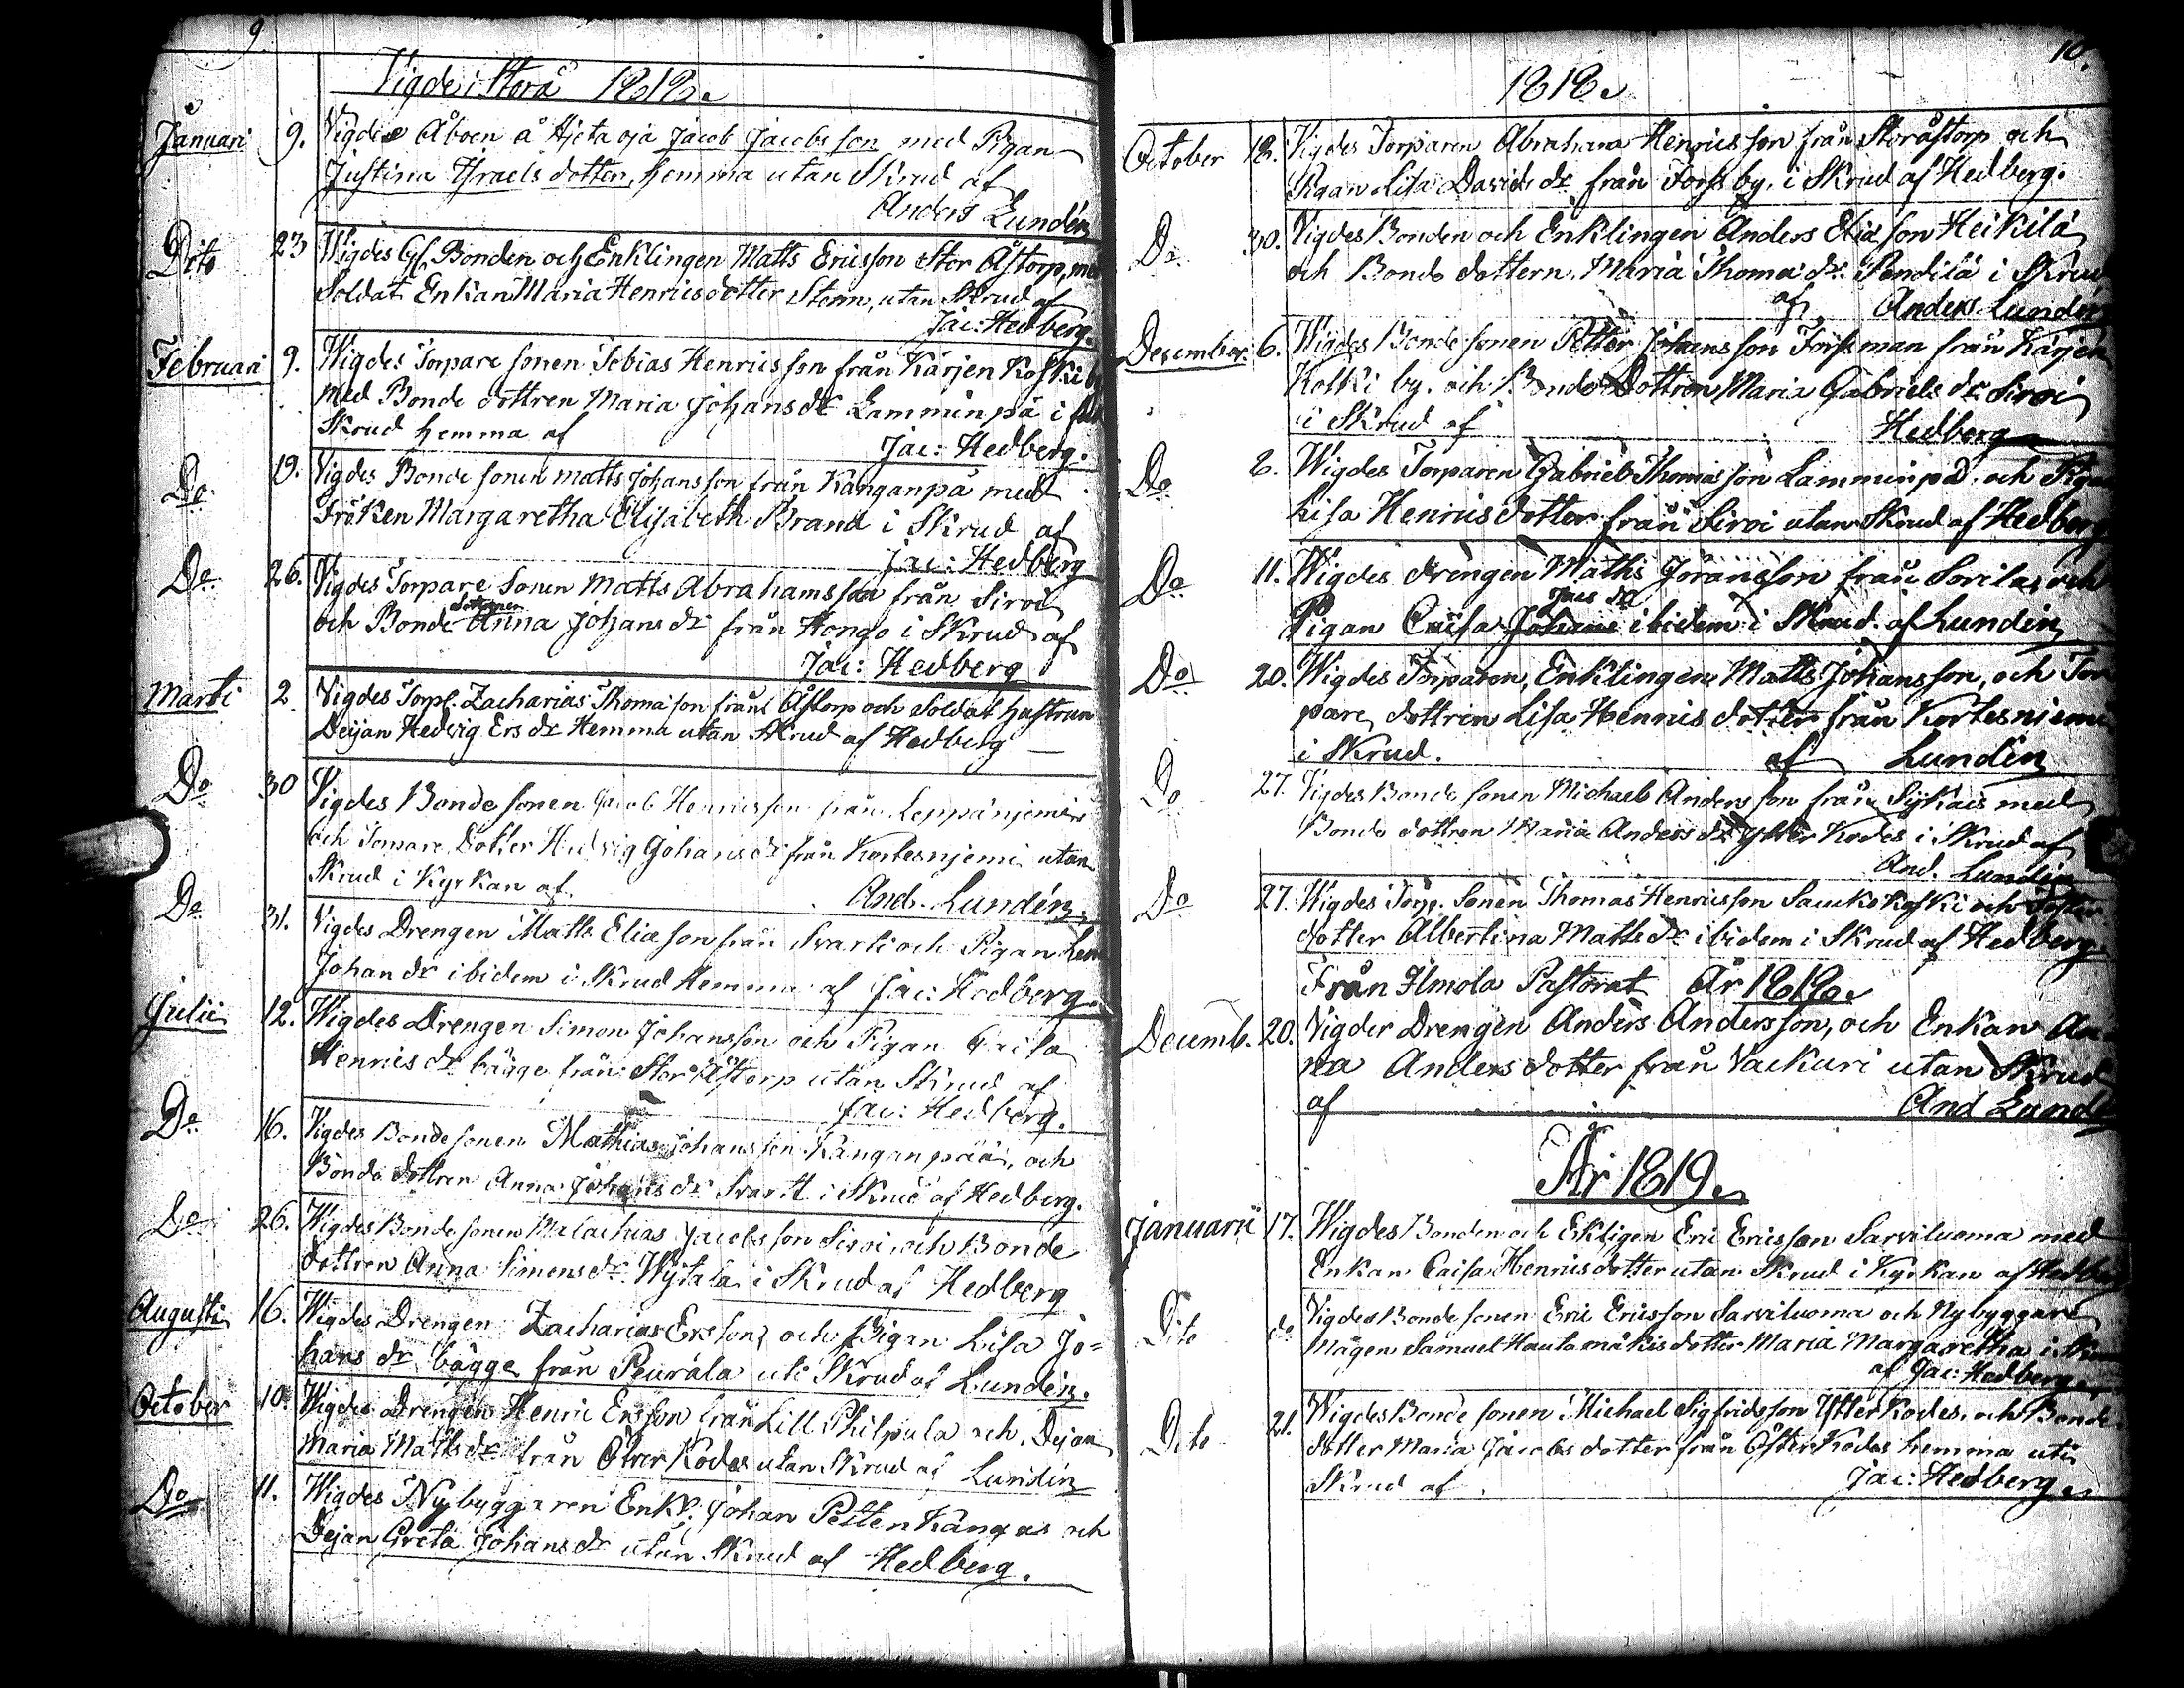 9
Vigde i Storå 1818.
Januari 9. Vigdes Åboen å Hjeta oja Jacob Jacobsson med Pigan
Justina Israels dotter, hemma utan Skrud af
Anders Lundén
Dito 23 Wigdes Gl. Bonden och Enklingen Matts Ericsson Stor Åstorp, med
Soldats Enkan Maria Henricsdotter Storm, utan Skrud af
Jac: Hedberg.
Februari 9. Wigdes Torpare sonen Tobias Henricsson från Kärjen Koski by
med Bonde dottren Maria Johans dr Lamminpä i
Skrud hemma af
Jac: Hedberg.
Do 19. Vigdes Bonde sonen Matts Johansson från Känganpä med
Fröken Margaretha Elisabeth Brand i Skrud af
Jac: Hedberg
Do 26. Vigdes Torpare Sonen Matts Abrahamsson från Siroi
och Bonde dottren Anna Johans dr från Hongo i Skrud af
Jac: Hedberg
Marti 2 Vigdes Torp. Zacharias Thomason från Åstorp och Soldat hustrun
Deijan Hedvig Ers dr Hemma utan Skrud af Hedberg
Do 30 Vigdes Bonde sonen Jacob Henricsson från Leppänjemi
och Torpare Dotter Hedvig Johans dr från Kortesnjemi utan
Skrud i Kyrkan af And. Lundén.
Do 31. Vigdes Drengen Matts Eliason från Svarti och Pigan
Johan dr ibidem i Skrud Hemma af Jac: Hedberg.
Julii 12. Wigdes Drengen Simon Johansson och Pigan Caisa
Henrics dr bägge från Stor Åstorp utan Skrud af
Jac: Hedberg.
Do 16. Vigdes Bonde sonen Mathias Johansson Känganpää, och
Bonde dottren Anna Johans dr Svartt i Skrud af Hedberg.
Do 26. Wigdes Bonde sonen Malachias Jacobsson Siroi och Bonde
dottren Anna Simons dr Wijtala i Skrud af Hedberg
Augusti 16. Wigdes Drengen Zacharias Ersson, och Pigan Lisa Jo=
hans dr bägge från Peurala uti Skrud af Lundén.
October 10. Wigdes Drengen Henric Ersson från Lill Philpula och Dejan
Maria Matts dr från Öfver Kodes utan Skrud af Lundén
Do 11. Wigdes Nybyggaren Enkl. Johan Peltenkangas och
Dejan Greta Johans dr utan Skrud af Hedberg.
10.
1818.
October 18. Vigdes Torparen Abraham Henricsson från Storåstorp och
Pigan Lisa Davids dr från Forss by, i Skrud af Hedberg.
Do 30. Vigdes Bonden och Enklingen Anders Eliason Heikilä
och Bonde dottern Maria Thoma dr Pendilä i Skrud
af Anders Lundén
December 6. Wigdes Bonde sonen Petter Johansson Forssman från Kärjen
Koski by. och Bonde Dottren Maria Gabriels dr Siroi
i Skrud af Hedberg
Do 8. Wigdes Torparen Gabriel Thomasson Lamminpä och Pigan
Lisa Henricsdotter från Siroi utan Skrud af Hedberg
Do 11. Wigdes drengen Maths Joransson från Sorila och
Pigan Caisa Johans Jacs dr ibidem i Skrud af Lundén
Do 20. Wigdes Torparen, Enklingen Matts Johansson, och Tor
pare dottren Lisa Henrics dotter från Kortesnjemi
i Skrud. af Lundén
Do 27. Vigdes Bonde sonen Michael Andersson från Sijkais med
Bonde dottren Maria Anders dr Ytter Kodes i Skrud af
And. Lundén
Do 27. Wigdes Torp. Sonen Thomas Henricsson Sauckokoski och
dotter Albertina Matts dr ibidem i Skrud af Hedberg
Från Ilmola Pastorat År 1818.
Decemb. 20. Vigder Drengen Anders Andersson, och Enkan An
na Andersdotter från Vackuri utan Skrud
af And Lundé
År 1819.
Januarii 17. Wigdes Bonden och Ekligen Eric Ericsson Sarviluoma med
Enkan Caisa Henricsdotter utan Skrud i Kyrkan af Hedberg
Dito do Vigdes Bonde sonen Eric Ericsson Sarviluoma och Nybyggare
Mågen Samuel Hautamäkis dotter Maria Margaretha i Skrud
af Jac: Hedberg
Dito 21. Wigdes Bonde sonen Michael Sigfridsson Ytter Kodes, och Bonde
dotter Maria Jacobs dotter från Öfter Kodes hemma uti
Skrud af Jac: Hedberg.